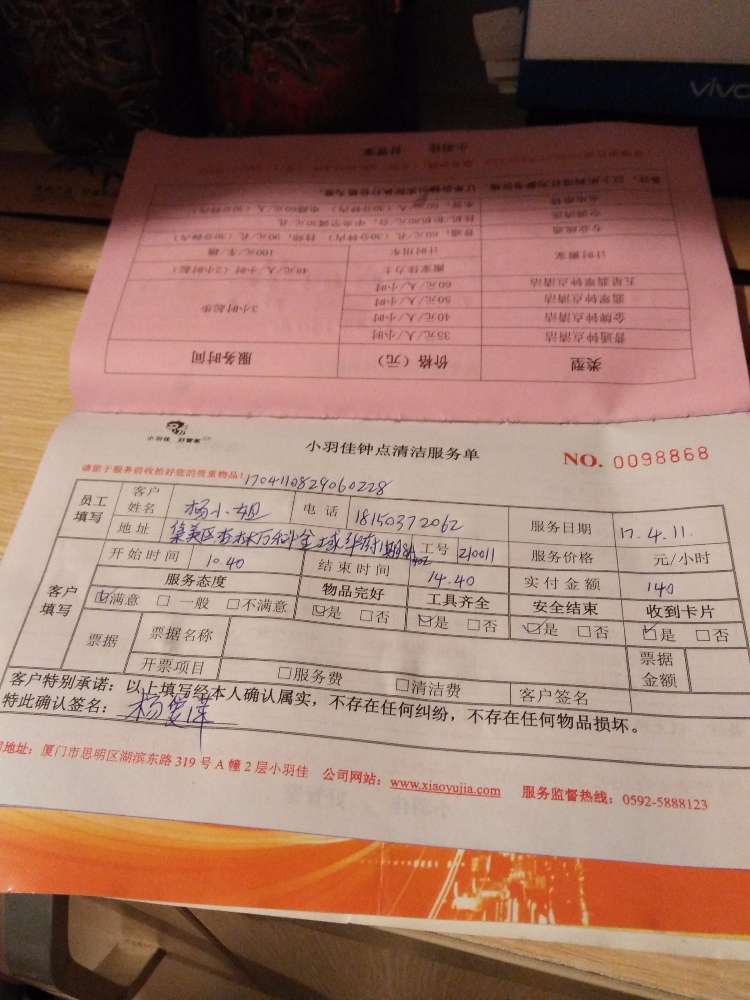 vivo
小羽佳 好管家
备注:以上所列项目均为参考价格,订单金额以实际执行价格为准。
类型 价格(元) 服务时间
普通钟点清洁 35元/人/小时 3小时起步
金牌钟点清洁 40元/人/小时
翡翠钟点清洁 50元/人/小时
五星翡翠钟点清洁 60元/人/小时
计时搬家 搬家佳力士 40元/人/小时(2小时起)
计时用车 100元/车/趟
专业疏通
空调清洗
水电维修
小羽佳 好管家
小羽佳钟点清洁服务单 NO. 0098868
请您于服务前收拾好您的贵重物品! 1704110829060228
员工填写 客户姓名 杨小姐 电话 18150372062 服务日期 17.4.11.
地址 集美区杏林万科金域华府 工号 210011 服务价格 元/小时
客户填写 开始时间 10.40 结束时间 14.40 实付金额 140
服务态度 物品完好 工具齐全 安全结束 收到卡片
☑满意 □一般 □不满意 ☑是 □否 ☑是 □否 ☑是 □否 ☑是 □否
票据 票据名称 票据金额
开票项目 □服务费 □清洁费 客户签名
客户特别承诺:以上填写经本人确认属实,不存在任何纠纷,不存在任何物品损坏。
特此确认签名:
地址:厦门市思明区湖滨东路319号A幢2层小羽佳 公司网站:www.xiaoyujia.com 服务监督热线:0592-5888123